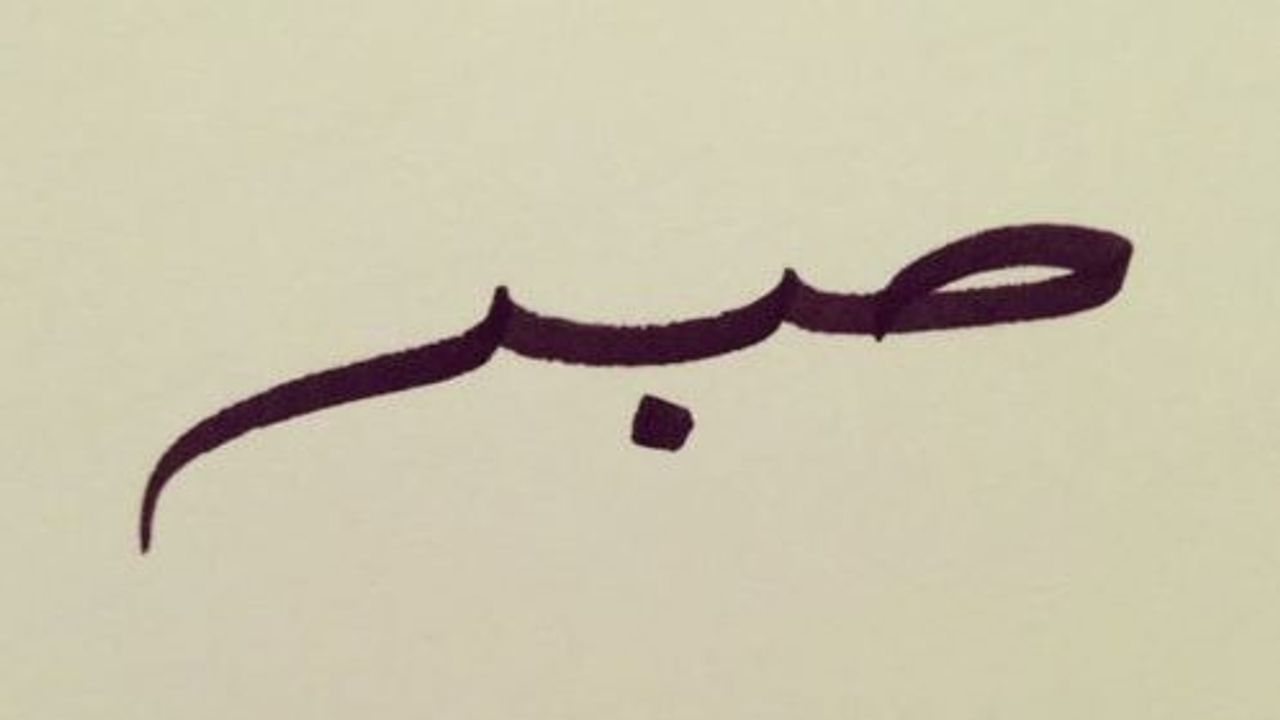 صبر